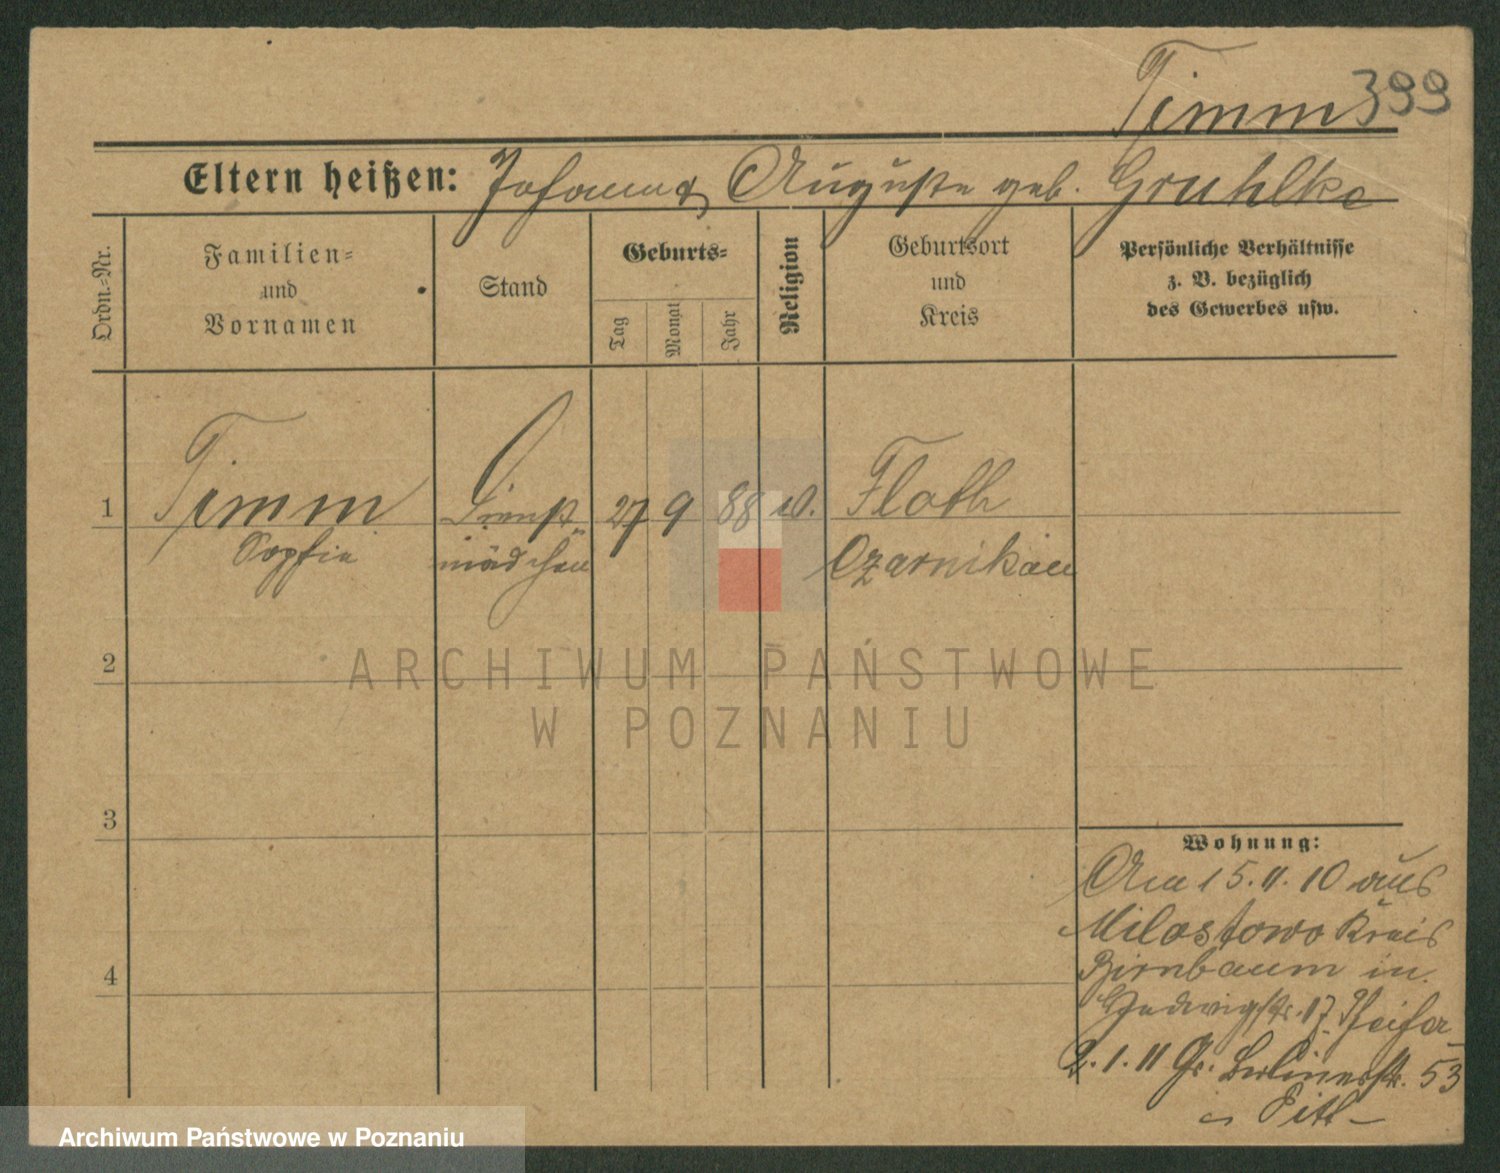 Timm 399
Eltern heißen: Johann & Auguste geb. Gruhlke
Ordn.-Nr.
Familien-
und
Vornamen
Stand
Geburts-
Tag
Monat
Jahr
Religion
Geburtsort
und
Kreis
Persönliche Verhältnisse
z. B. bezüglich
des Gewerbes usw.
1 Timm Dienst- 27 9 88 Floth
Sophie mädchen Czarnikau
2
3
4
Wohnung:
Am 15.11.10 aus
Milostowo Kreis
Birnbaum in
Hedwigstr. 17 Pfeifer
2.1.11 Gr. Berlinerstr. 53
ARCHIWUM PAŃSTWOWE
W POZNANIU
Archiwum Państwowe w Poznaniu